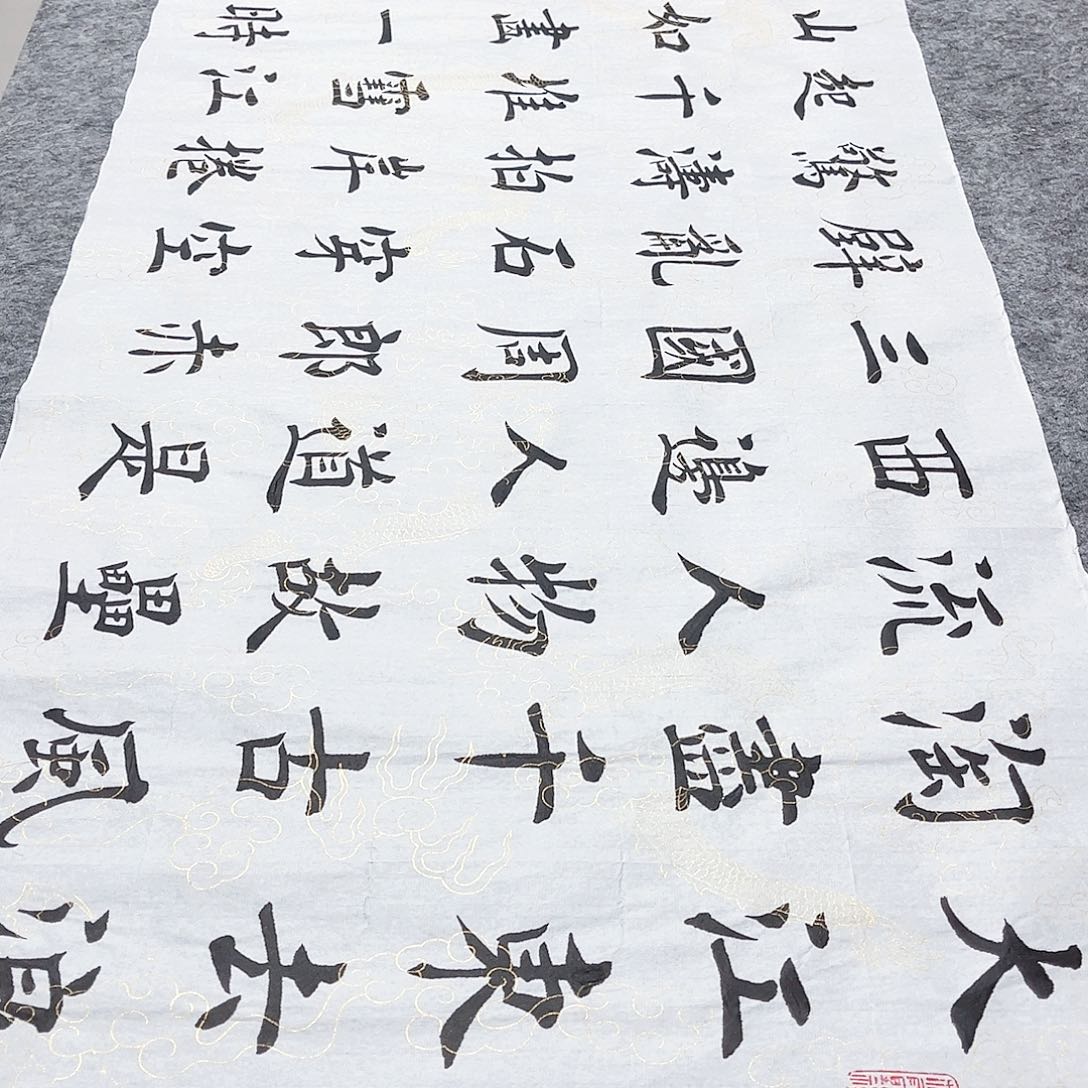 大江東去浪
淘盡千古風
流人物故壘
西邊人道是
三國周郎赤
壁亂石穿空
驚濤拍岸捲
起千堆雪江
山如畫一時